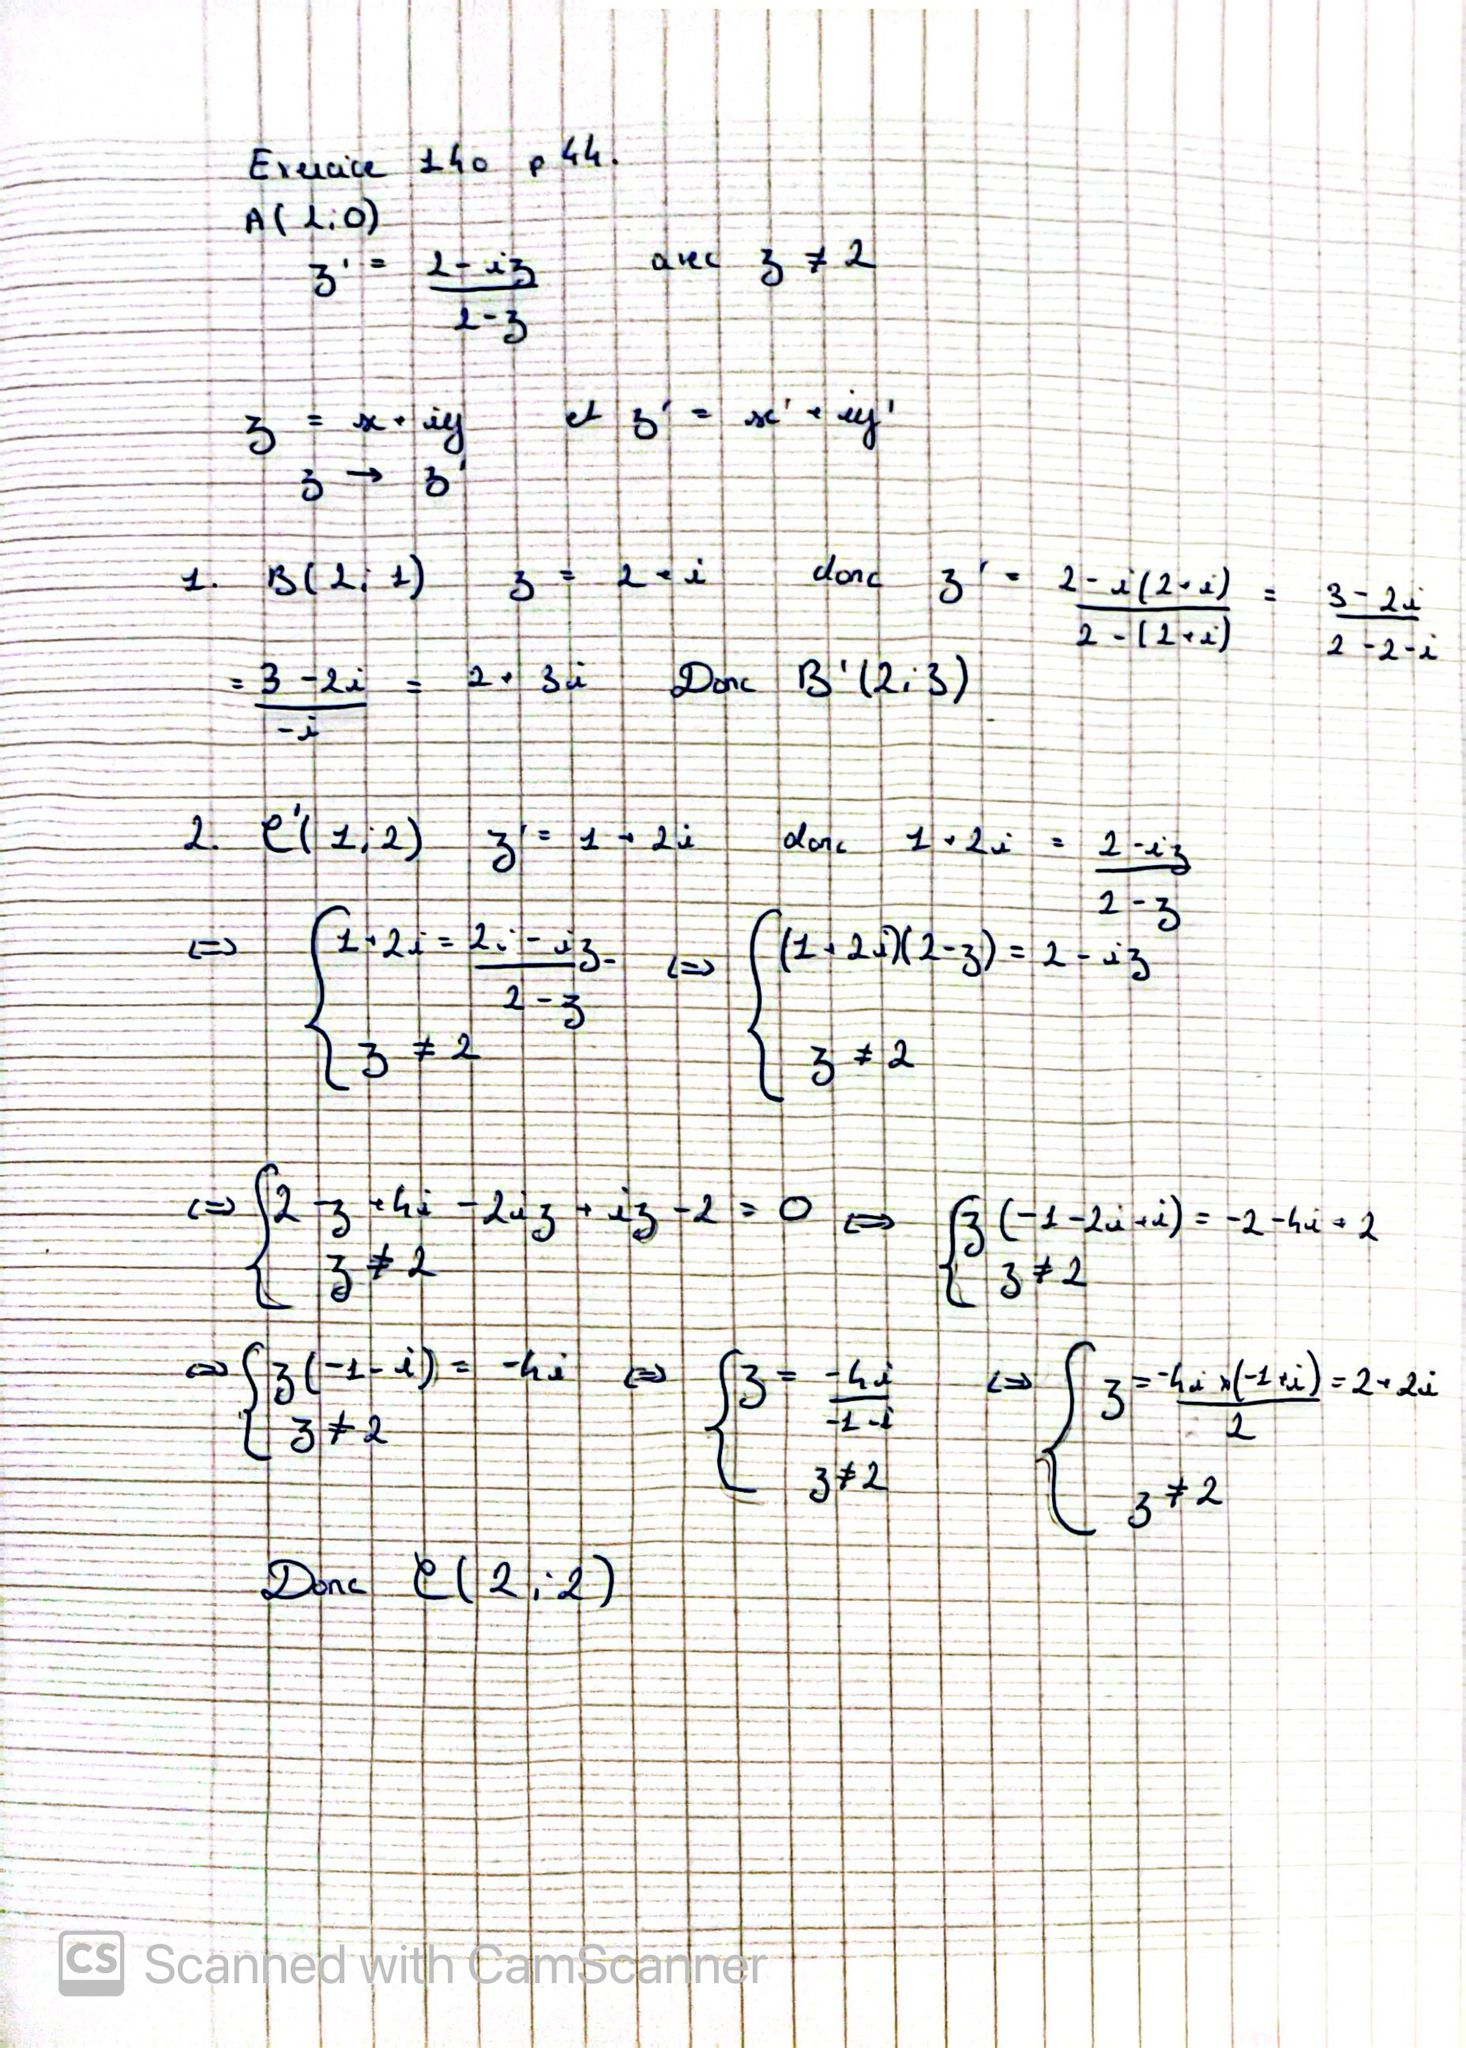 Exercice 140 p 44.
A(2;0)
z' = (2-iz)/(2-z) avec z ≠ 2
z = x + iy et z' = x' + iy'
z → z'
1. B(2;1) z = 2 + i donc z' = (2-i(2+i))/(2-(2+i)) = (3-2i)/(2-2-i)
= (3-2i)/(-i) = 2 + 3i Donc B'(2;3)
2. C'(1;2) z' = 1 + 2i donc 1+2i = (2-iz)/(2-z)
⇔ { 1+2i = (2i-iz)/(2-z) ⇔ { (1+2i)(2-z) = 2-iz
z ≠ 2 z ≠ 2
⇔ { 2-z+4i-2iz+iz-2 = 0 ⇔ { z(-1-2i+i) = -2-4i+2
z ≠ 2 z ≠ 2
⇔ { z(-1-i) = -4i ⇔ { z = (-4i)/(-1-i) ⇔ { z = (-4i×(-1+i))/2 = 2+2i
z ≠ 2 z ≠ 2 z ≠ 2
Donc C(2;2)
CS Scanned with CamScanner